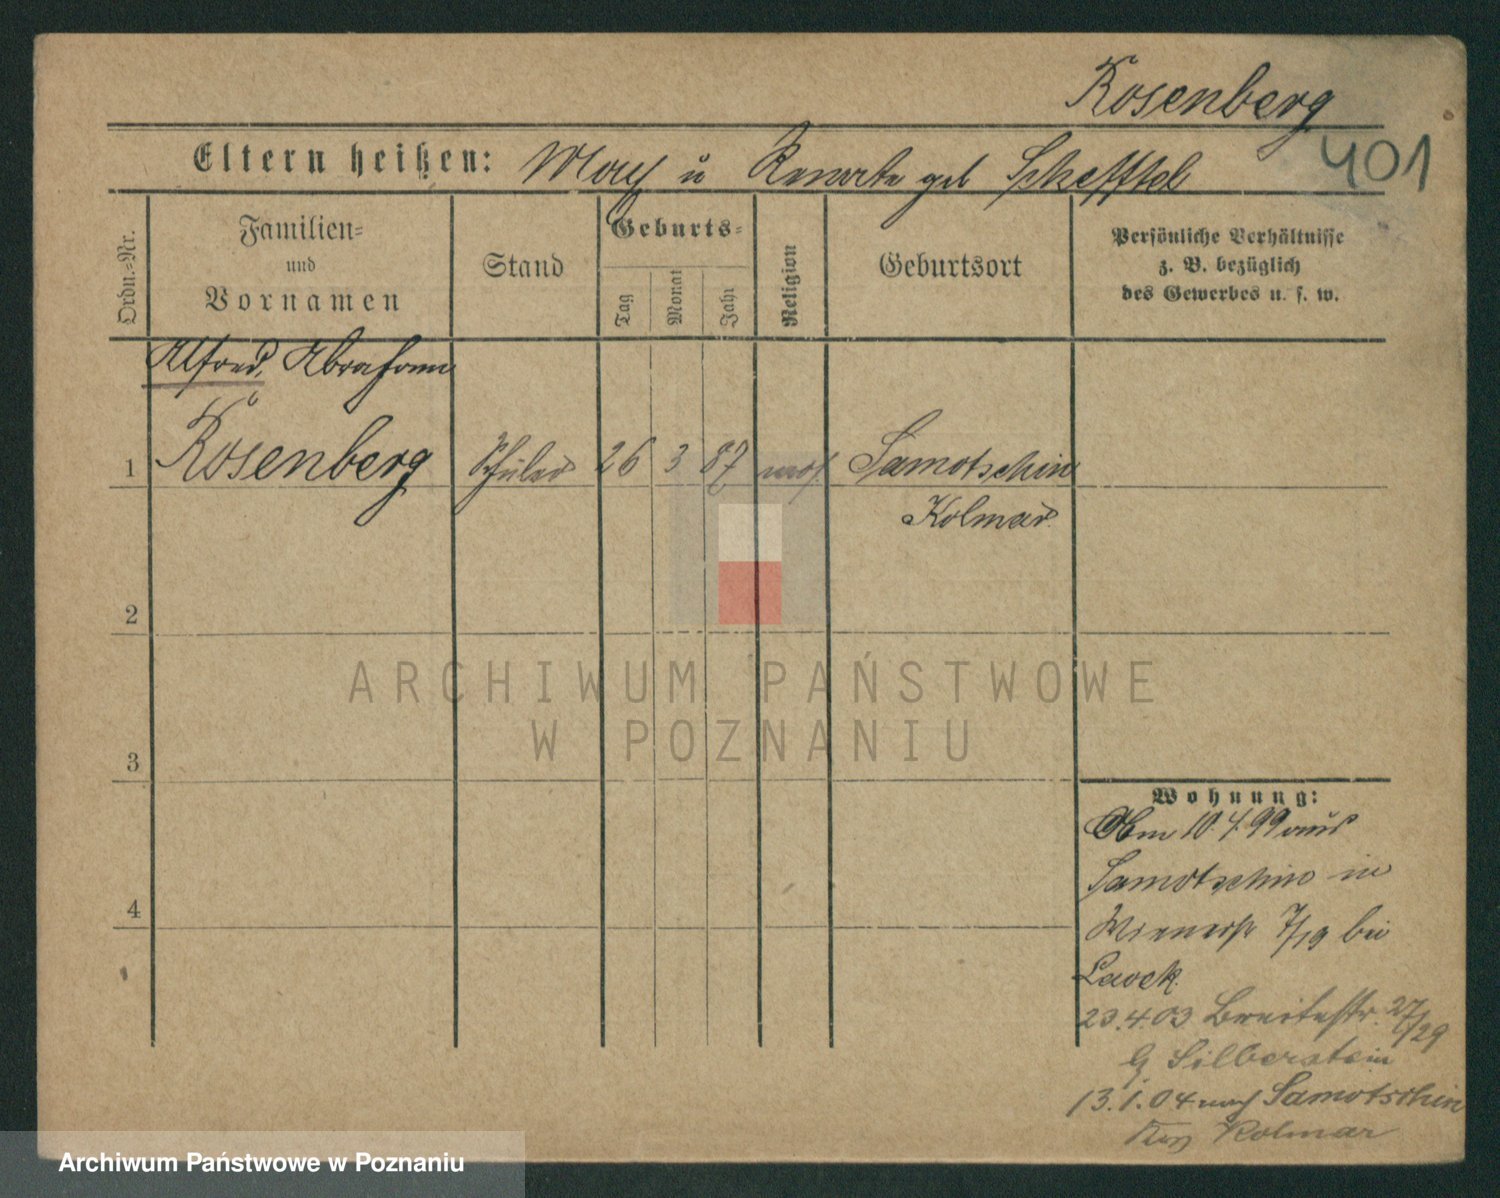 Rosenberg
401
Eltern heißen: Max u Renate geb Scheftel
Ordn.=Nr.
Familien=
und
Vornamen
Stand
Geburts=
Tag
Monat
Jahr
Religion
Geburtsort
Persönliche Verhältnisse
z. B. bezüglich
des Gewerbes u. s. w.
Alfred, Abraham
1 Rosenberg Schüler 26 3 87 mos. Samotschin
Kolmar
2
3
4
ARCHIWUM PAŃSTWOWE
W POZNANIU
Wohnung:
10.4.99 aus
Samotschin in
Wienerstr 7/19 bei
23.4.03 Breitestr. 27/29
Silberstein
13.1.04 nach Samotschin
Kolmar
Archiwum Państwowe w Poznaniu